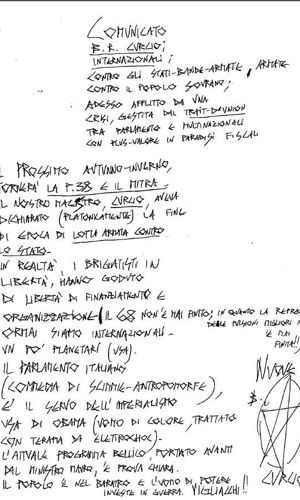 COMUNICATO
B.R. CURCIO;
INTERNAZIONALI;
CONTRO GLI STATI-BANDE-ARMATE, ARMATE
CONTRO IL POPOLO SOVRANO;
ADESSO AFFLITTO DA UNA
CRISI, GESTITA DAL TRAIT-DEUNION
TRA PARLAMENTO E MULTINAZIONALI
CON PLUS-VALORE IN PARADISI FISCALI
L PROSSIMO AUTUNNO-INVERNO,
TORNERA' LA P.38 E IL MITRA.
IL NOSTRO MAESTRO, CURCIO, AVEVA
DICHIARATO (PLATONICAMENTE) LA FINE
DI EPOCA DI LOTTA ARMATA CONTRO
LO STATO.
IN REALTA', I BRIGATISTI IN
LIBERTA', HANNO GODUTO
DI LIBERTA' DI FINANZIAMENTO E
ORGANIZZAZIONE. IL 68 NON E' MAI FINITO; IN QUANTO LA
DELLE MIGLIORI
ORMAI SIAMO INTERNAZIONALI.
E' MAI
UN PO' PLANETARI (USA).
FINITA!!
IL PARLAMENTO ITALIANO
NUOVE
(COMMEDIA DI SCIMMIE-ANTROPOMORFE),
E' IL SERVO DELL'IMPERIALISMO
USA DI OBAMA (UOMO DI COLORE, TRATTATO
CON TERAPIA DA ELETTROCHOC).
L'ATTUALE PROGRAMMA BELLICO, PORTATO AVANTI
DAL MINISTRO MAURO, E' PROVA CHIARA.
CURCIO
IL POPOLO E' NEL BARATRO E L'UOMO DI POTERE
INVESTE IN GUERRA. VIGLIACCHI!!